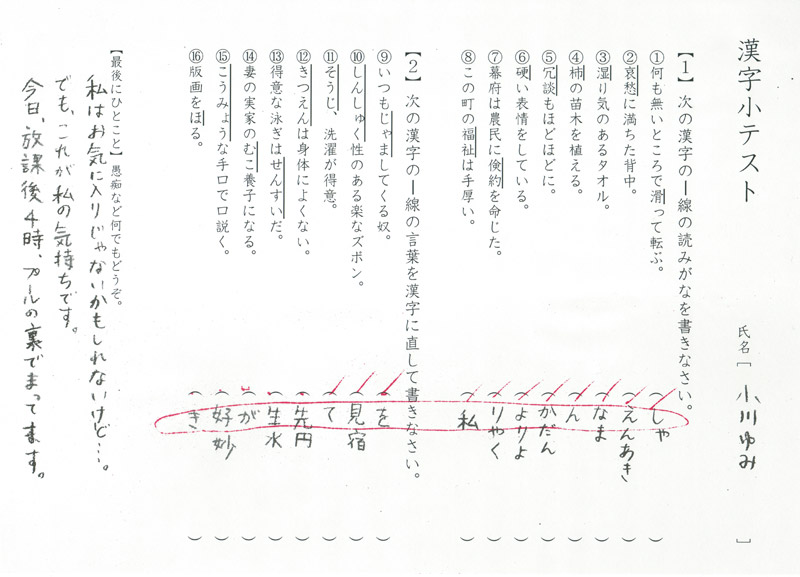 漢字小テスト 氏名[ 小川ゆみ ]
【1】次の漢字の―線の読みがなを書きなさい。
①何も無いところで滑って転ぶ。(しゃ)
②哀愁に満ちた背中。(えんあき)
③湿り気のあるタオル。(なま)
④柿の苗木を植える。(ん)
⑤冗談もほどほどに。(かだん)
⑥硬い表情をしている。(よりよ)
⑦幕府は農民に倹約を命じた。(りやく)
⑧この町の福祉は手厚い。(私)
【2】次の漢字の―線の言葉を漢字に直して書きなさい。
⑨いつもじゃましてくる奴。(を)
⑩しんしゅく性のある楽なズボン。(見宿)
⑪そうじ、洗濯が得意。(て)
⑫きつえんは身体によくない。(先円)
⑬得意な泳ぎはせんすいだ。(生水)
⑭妻の実家のむこ養子になる。(が)
⑮こうみょうな手口で口説く。(好妙)
⑯版画をほる。(き)
【最後にひとこと】愚痴など何でもどうぞ。
私はお気に入りじゃないかもしれないけど…。
でも、これが私の気持ちです。
今日、放課後4時、プールの裏でまってます。